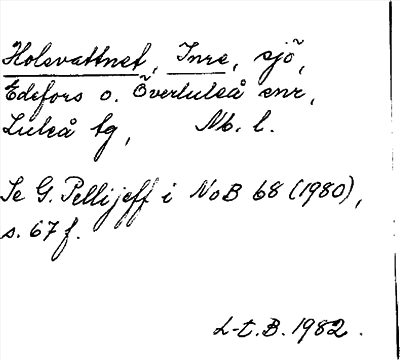 Holsvattnet, Inre, sjö,
Edefors o. Överluleå snr,
Luleå tg, Nb. l.
Se G. Pellijeff i NoB 68 (1980),
s. 67 f.
L-t.B. 1982.